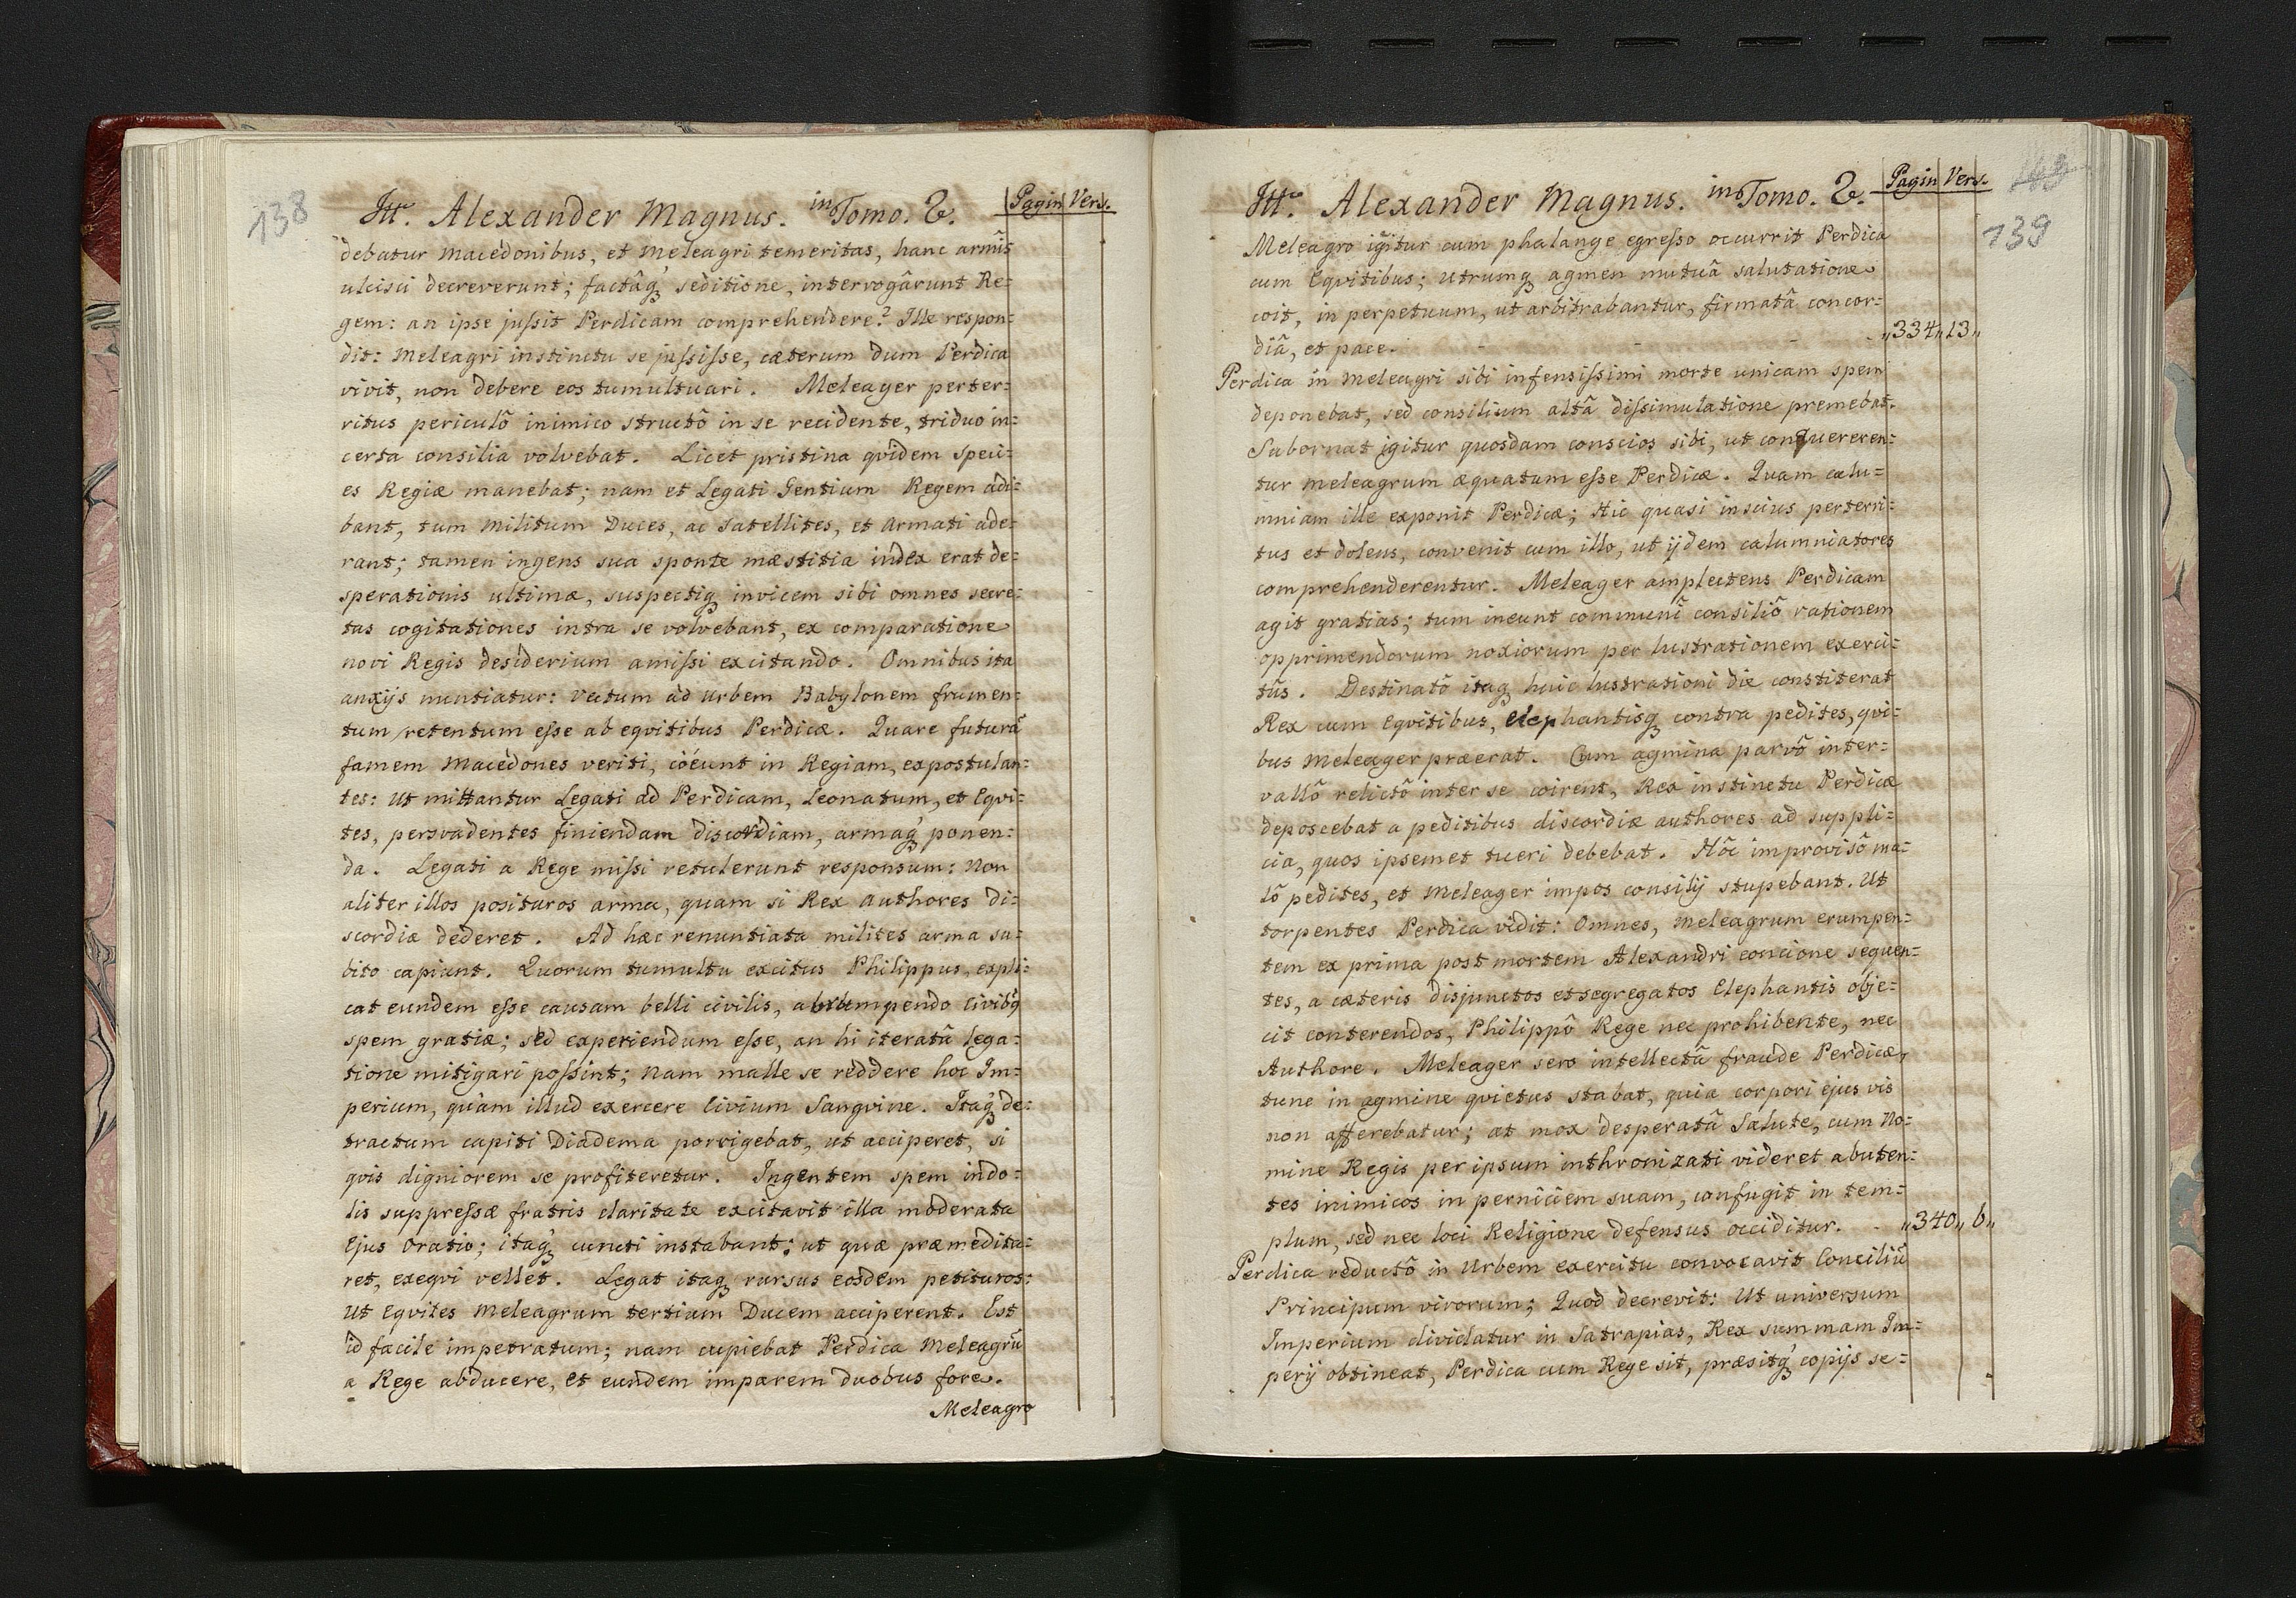 138
Itt. Alexander Magnus. in Tomo. 2. Pagin Vers.
debatur Macedonibus, et Meleagri temeritas, hanc armis
ulcisci decreverunt; factâq́ꝫ seditione, interrogârunt Re=
gem: an ipse juſsit Perdicam comprehendere? Ille respon=
dit: Meleagri instinctu se juſsiſse, cæterum dum Perdica
vivit, non debere eos tumultuari. Meleager perter=
ritus periculô inimico structô in se recidente, triduo in=
certa consilia volvebat. Licet pristina qvidem speci=
es Regiæ manebat; nam et Legati Gentium Regem adi=
bant, tum Militum Duces, ac Satellites, et Armati ade=
rant; tamen ingens sua sponte mæstitia index erat de=
sperationis ultimæ, suspectiqꝫ invicem sibi omnes secre=
tas cogitationes intra se volvebant, ex comparatione
novi Regis desiderium amiſsi excitando. Omnibus ita
anxijs nuntiatur: vectum ad Urbem Babylonem frumen=
tum retentum eſse ab eqvitibus Perdicæ. Quare futurã
famem Macedones veriti, cóëunt in Regiam, expostulan=
tes: Ut mittantur Legati ad Perdicam, Leonatum, et Eqvi=
tes, persvadentes finiendam discordiam, armaq́ꝫ ponen=
da. Legati a Rege miſsi retulerunt responsum: Non
aliter illos posituros arma, quam si Rex Authores di=
scordiæ dederet. Ad hæc renuntiata milites arma su=
bito capiunt. Quorum tumultu excitus Philippus, expli=
cat eundem eſse causam belli civilis, abrumpendo Civibqꝫ
spem gratiæ; sed experiendum eſse, an hi iteratâ lega=
tione mitigari poſsint; Nam malle se reddere hoc Im=
perium, quàm illud exercere Civium Sangvine. Itaq́ꝫ de=
tractum capiti Diadema porrigebat, ut acciperet, si
qvis digniorem se profiteretur. Ingentem spem indo=
lis suppreſsæ fratris claritate excitavit illa moderata
Ejus Oratio; itaq́ꝫ cuncti instabant: ut quæ præmedita=
ret, exeqvi vellet. Legat itaqꝫ rursus eosdem petituros:
Ut Eqvites Meleagrum tertium Ducem acciperent. Est
id facile impetratum; nam cupiebat Perdica Meleagrũ
a Rege abducere, et eundem imparem duobus fore.
Meleagro
139
Itt. Alexander Magnus. in Tomo. 2. Pagin Vers.
Meleagro igitur cum phalange egreſso occurrit Perdica
cum Eqvitibus; utrumqꝫ agmen mutuâ salutatione
coit, in perpetuum, ut arbitrabantur, firmatâ concor=
diâ, et pace. - - - - „334„13„
Perdica in Meleagri sibi infensiſsimi morte unicam spem
deponebat, sed consilium altâ diſsimulatione premebat.
Subornat igitur quosdam conscios sibi, ut conquereren=
tur Meleagrum æquatum eſse Perdicæ. Quam calu=
mniam ille exponit Perdicæ; Hic quasi inscius perterri=
tus et dolens, convenit cum illo, ut ijdem calumniatores
comprehenderentur. Meleager amplectens Perdicam
agit gratias; tum ineunt communi consiliô rationem
opprimendorum noxiorum per lustrationem exerci=
tûs. Destinatô itaqꝫ huic lustrationi die constiterat
Rex cum Eqvitibus, elephantisqꝫ contra pedites, qvi=
bus Meleager præerat. Cum agmina parvô inter=
vallô relictô inter se coirent, Rex instinctu Perdicæ
deposcebat a peditibus discordiæ authores ad suppli=
cia, quos ipsemet tueri debebat. Hôc improvisô ma=
lô pedites, et Meleager impos consilij stupebant. Ut
torpentes Perdica vidit: Omnes, Meleagrum erumpen=
tem ex prima post mortem Alexandri concione sequen=
tes, a cæteris disjunctos et segregatos Elephantis obje=
cit conterendos, Philippô Rege nec prohibente, nec
Authore. Meleager sero intellectâ fraude Perdicæ,
tunc in agmine qvietus stabat, quia corpori ejus vis
non afferebatur; at mox desperatâ Salute, cum No=
mine Regis per ipsum inthronizati videret abuten=
tes inimicos in perniciem suam, confugit in tem=
plum, sed nec loci Religione defensus occiditur. - „340„6„
Perdica reductô in Urbem exercitu convocavit Conciliũ
Principum virorum; Quod decrevit: Ut universum
Imperium dividatur in Satrapias, Rex summam Im=
perij obtineat, Perdica cum Rege sit, præsitq́ꝫ copijs se=